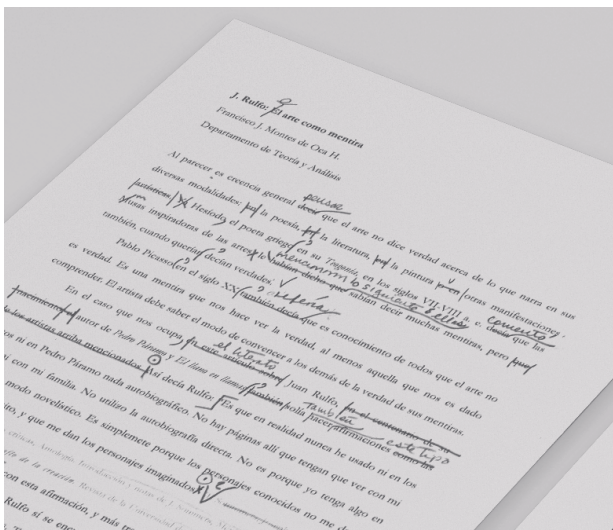 J. Rulfo: El arte como mentira
Francisco J. Montes de Oca H.
Departamento de Teoría y Análisis
pensar
Al parecer es creencia general decir que el arte no dice verdad acerca de lo que narra en sus
diversas modalidades: la poesía, la literatura, la pintura otras manifestaciones
artísticas Hesíodo, el poeta griego en su Teogonía, en los siglos VII-VIII a. c. decía que las
comentó
Musas inspiradoras de las artes le habían dicho que sabían decir muchas mentiras, pero
mencionaron lo siguiente: Ellas
también, cuando querían decían verdades.
Pablo Picasso en el siglo XX también decía que es conocimiento de todos que el arte no
refería
es verdad. Es una mentira que nos hace ver la verdad, al menos aquella que nos es dado
comprender. El artista debe saber el modo de convencer a los demás de la verdad de sus mentiras.
En el caso que nos ocupa, en este artículo sobre Juan Rulfo, en el centenario de su
el literato
nacimiento autor de Pedro Páramo y El llano en llamas también solía hacer afirmaciones como las
también este tipo
los artistas arriba mencionados Así decía Rulfo: "Es que en realidad nunca he usado ni en los
ni en Pedro Páramo nada autobiográfico. No hay páginas allí que tengan que ver con mi
con mi familia. No utilizo la autobiografía directa. No es porque yo tenga algo en
modo novelístico. Es simplemente porque los personajes conocidos no me
y que me dan los personajes imaginados
de la creación. Revista de la Universidad
con esta afirmación, y más
Rulfo sí se